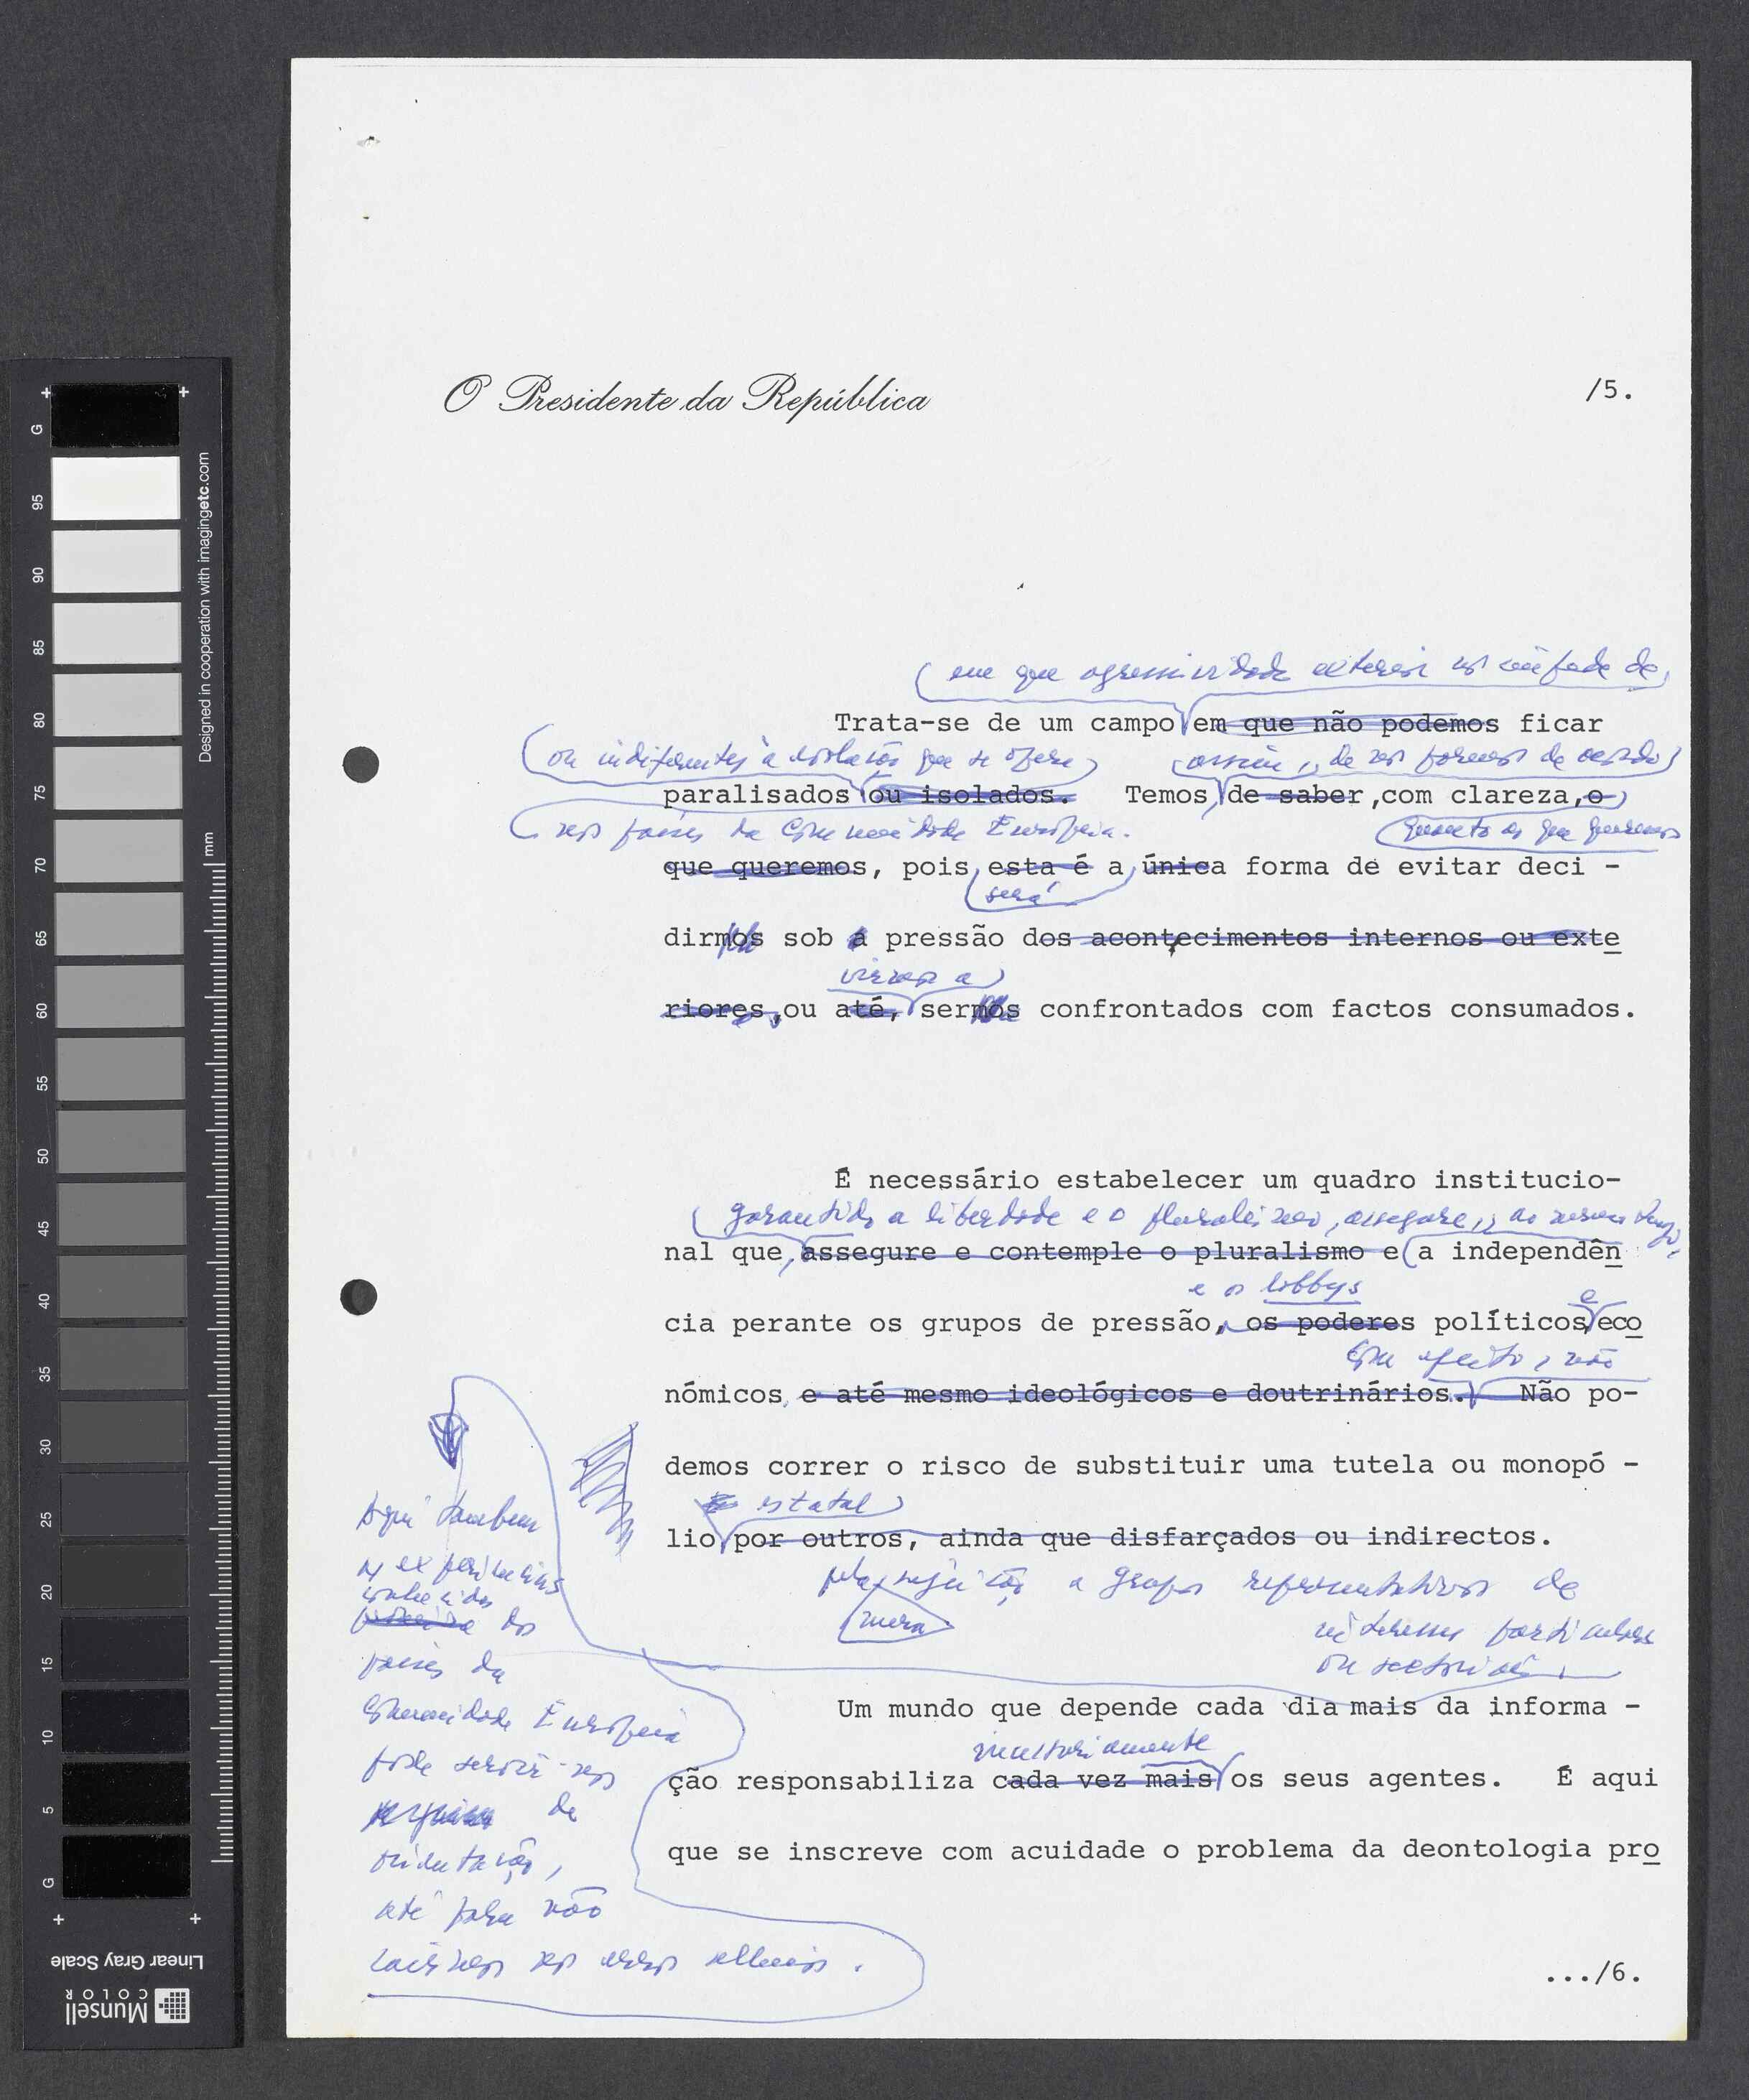 O Presidente da República
/5.
em que a agressividade exterior nos impede de
Trata-se de um campo em que não podemos ficar
ou indiferentes à evolução que se opera
assim, de nos pormos de acordo
paralisados ou isolados. Temos, de saber, com clareza, o
nos países da Comunidade Europeia.
quanto ao que queremos
que queremos, pois, esta é a única forma de evitar deci -
será
dirmos sob a pressão dos acontecimentos internos ou exte
virmos a
riores, ou até, sermos confrontados com factos consumados.
É necessário estabelecer um quadro institucio-
garantindo a liberdade e o pluralismo, assegure, ao mesmo tempo,
nal que, assegure e contemple o pluralismo e a independên
e os lobbys
e
cia perante os grupos de pressão, os poderes políticos, eco
Com efeito, não
nómicos, e até mesmo ideológicos e doutrinários. Não po-
demos correr o risco de substituir uma tutela ou monopó -
estatal
lio por outros, ainda que disfarçados ou indirectos.
pela sujeição a grupos representativos de
mera
interesses particulares
ou sectoriais.
Aqui também
as experiências
conhecidas
dos
países da
Comunidade Europeia
pode servir-nos
de
orientação,
até para não
cairmos nos erros alheios.
Um mundo que depende cada dia mais da informa -
necessariamente
ção responsabiliza cada vez mais os seus agentes. É aqui
que se inscreve com acuidade o problema da deontologia pro
.../6.
G
95
90
85
80
75
70
65
60
55
50
45
40
35
30
25
20
15
10
5
G
mm
Designed in cooperation with imagingetc.com
Linear Gray Scale
Munsell
COLOR